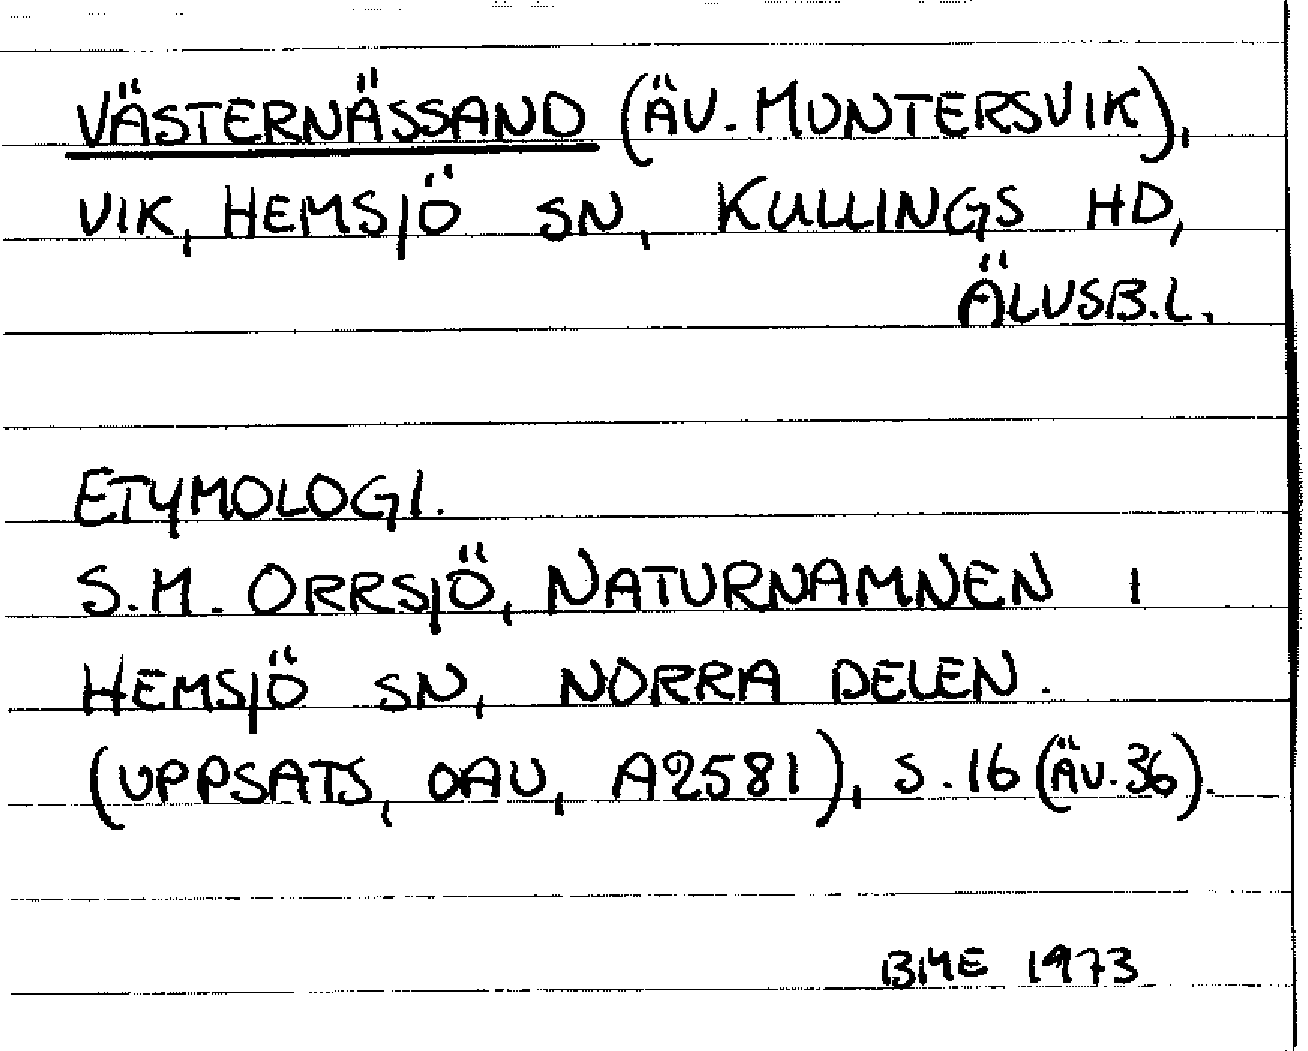 VÄSTERNÄSSAND (ÄV. MUNTERSVIK),
VIK, HEMSJÖ SN, KULLINGS HD,
ÄLVSB.L.
ETYMOLOGI.
S.M. ORRSJÖ, NATURNAMNEN I
HEMSJÖ SN, NORRA DELEN.
(UPPSATS, OAU, A2581), S. 16 (ÄV. 36).
BME 1973